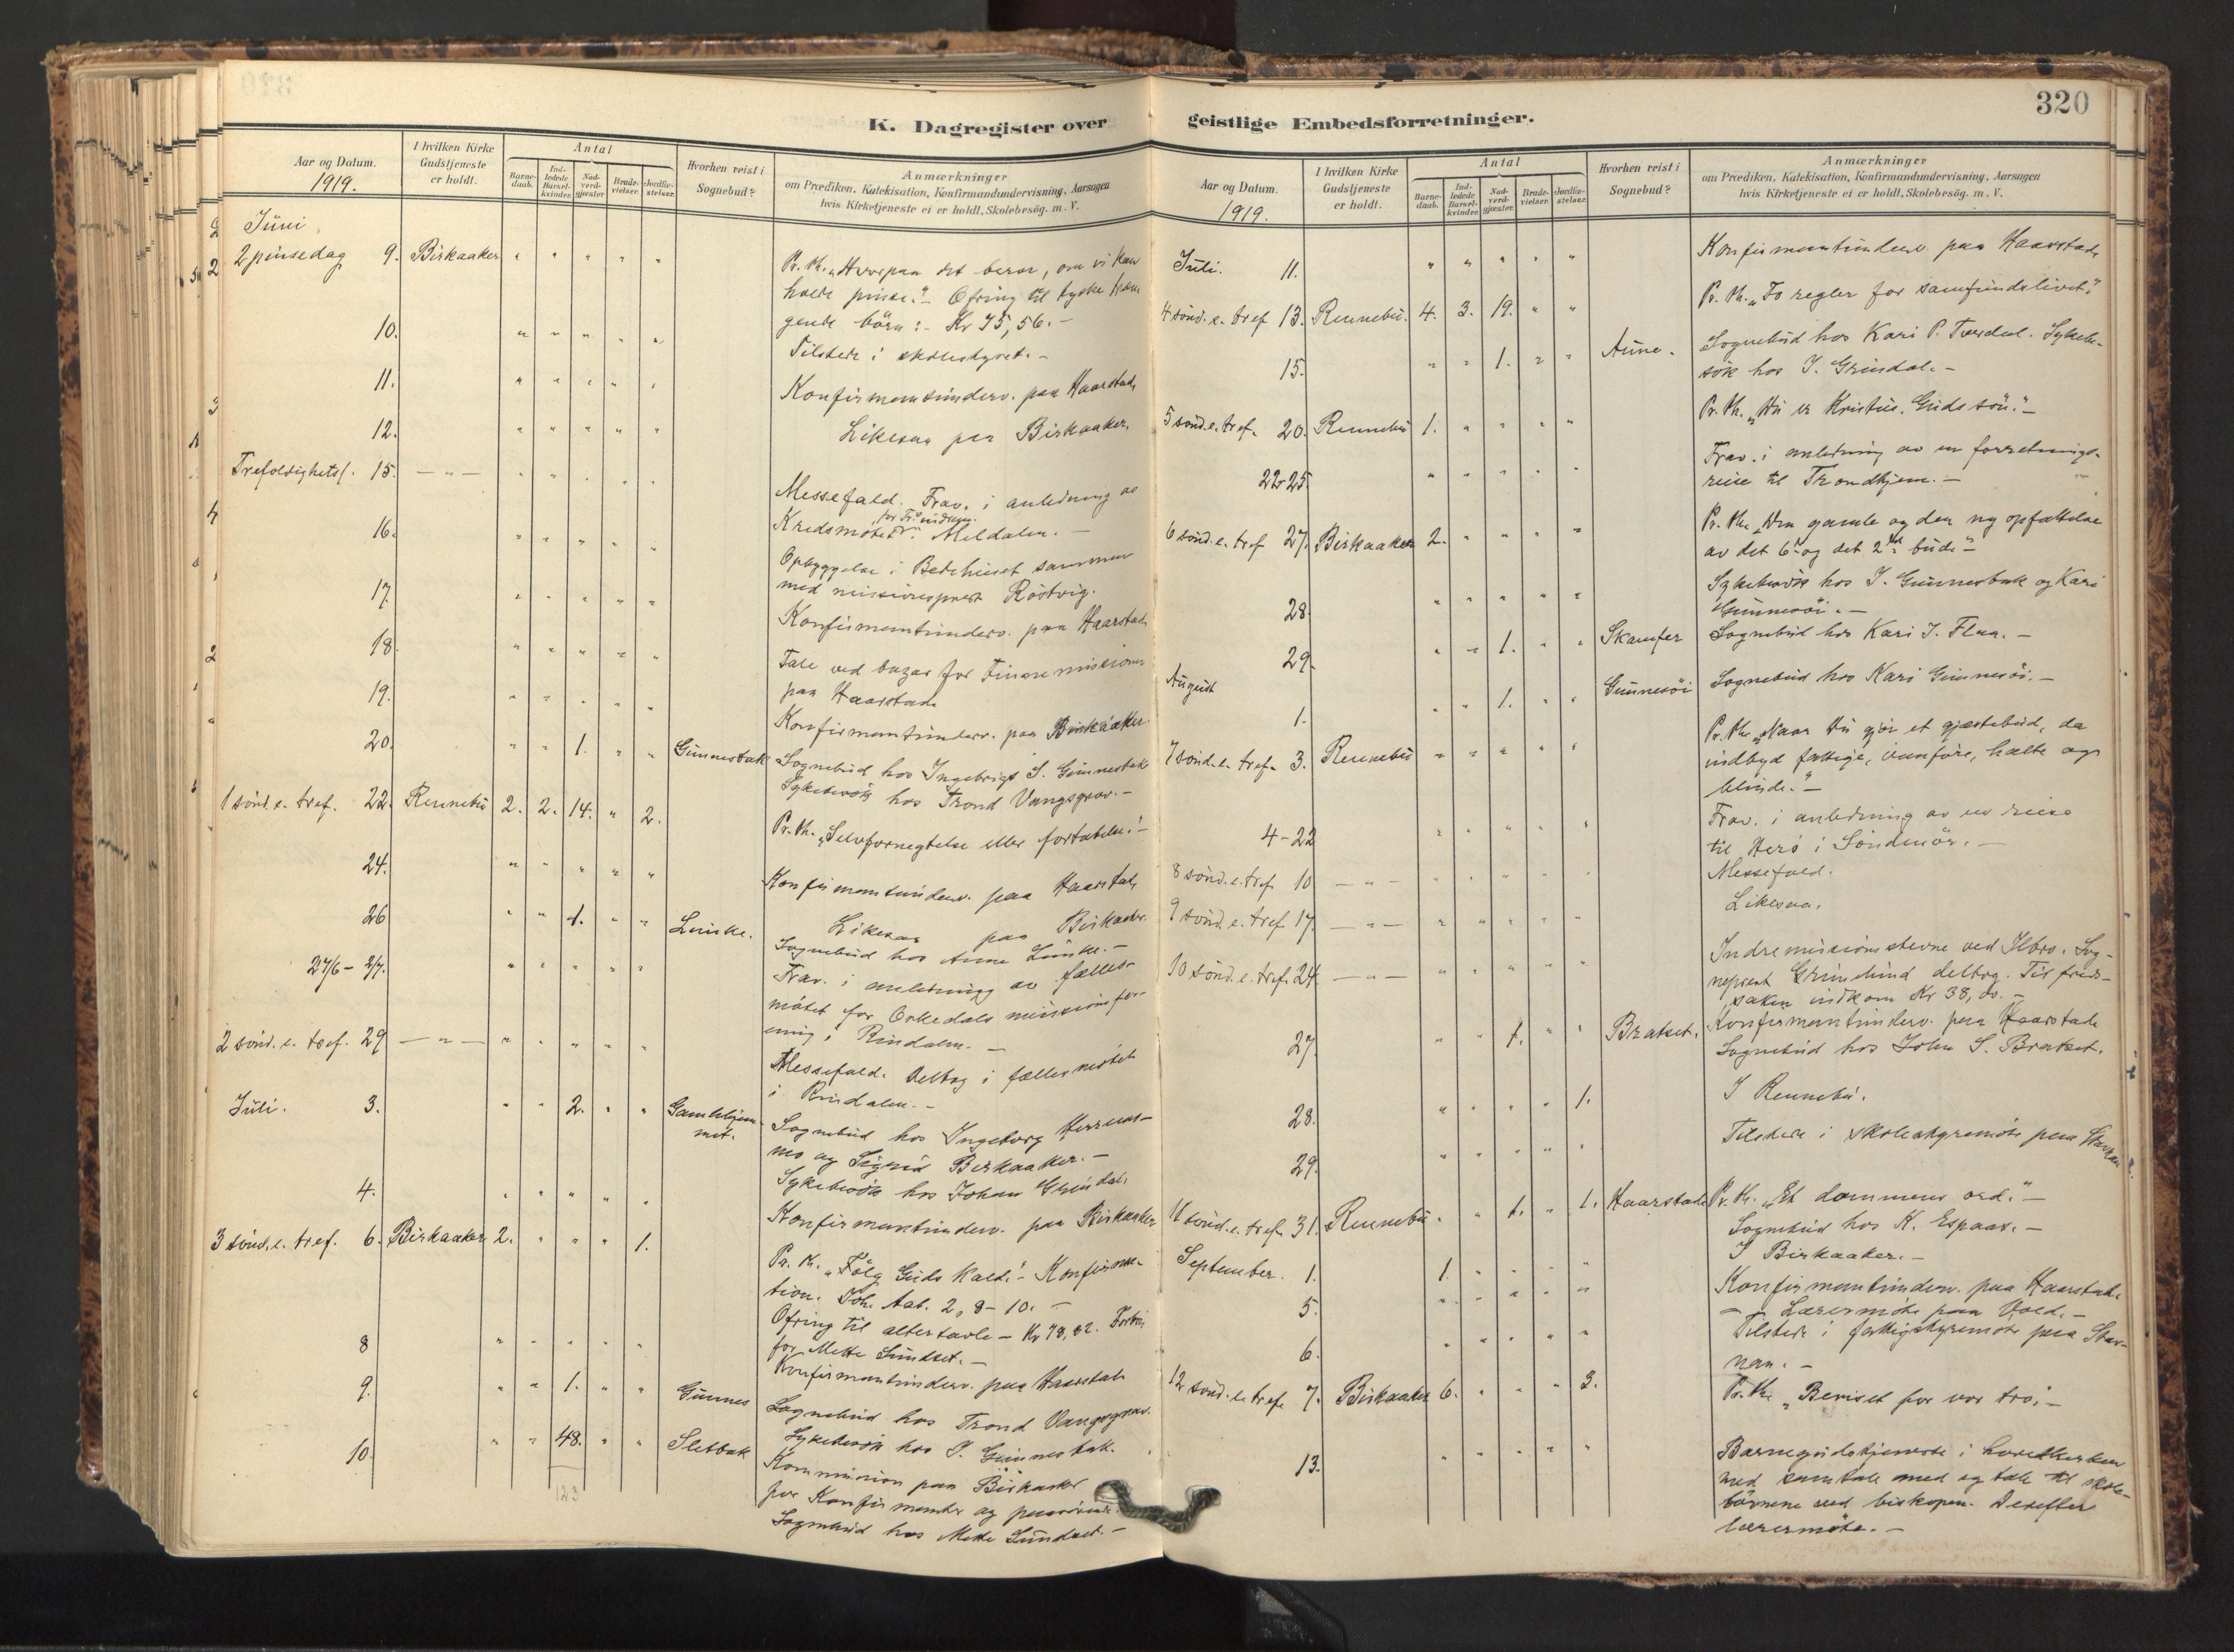 320
K. Dagregister over geistlige Embedsforretninger.
Aar og Datum.
1919.
I hvilken Kirke
Gudstjeneste
er holdt.
Antal
Barne-
daab.
Ind-
ledede
Barsel-
kvinder.
Nad-
verd-
gjæster.
Brude-
vielser.
Jordfæ-
stelser.
Hvorhen reist i
Sognebud?
Anmærkninger
om Prædiken, Katekisation, Konfirmandundervisning, Aarsagen
hvis Kirketjeneste ei er holdt, Skolebesøg. m. V.
Juni
2 pinsedag 9. Birkaaker " " " " "
Pr. th. "Hvorpaa det beror, om vi kan
holde pinse." - Ofring til tyske
gende børn: - Kr 75,56. -
10. " " " " "
Tilstede i skolestyret. -
11. " " " " "
Konfirmantunderv. paa Haarstad
12. " " " " "
Likesaa paa Birkaaker.
Trefoldighetsf. 15. — " — " " " " "
Messefald. Frav. i anledning av
Kredsmøtet i Meldalen. -
16. " " " " "
Opbyggelse i Bedehuset sammen
med missionsprest Röstvig.
17. " " " " "
Konfirmantunderv. paa Haarstad
18. " " " " "
Tale ved bazar for Finnemissionen
paa Haarstad
19. " " " " "
Konfirmantunderv. paa Birkaaker
20. " " 1. " " Gunnesbak
Sognebud hos Ingebrigt S. Gunnesbak
Sykebesøk hos Trond Vangsgrav. -
1 sønd. e. tref. 22. Rennebu 2. 2. 14. " 2.
Pr. th. "Selvfornegtelse eller fortabelse." -
24. " " " " "
Konfirmantunderv. paa Haarstad
26 " " 1. " " Lunke.
Likesaa paa Birkaaker.
Sognebud hos Anne Lunke. -
27/6 - 2/7. " " " " "
Frav. i anledning av fælles-
møtet for Orkedals missionsfor-
ening i Rindalen. -
2 sønd. e. tref. 29 — " — " " " " "
Messefald. Deltog i fællesmøtet
i Rindalen. -
Juli. 3. " " 2. " " Gamlehjem-
met.
Sognebud hos Ingeborg
mo og Sigrid Birkaaker. -
Sykebesøk hos Johan Grindal.
4. " " " " "
Konfirmantunderv. paa Birkaaker
3 sønd. e. tref. 6. Birkaaker 2. " " " 1.
Pr. th. "Følg Guds kald." - Konfirma-
tion. Joh. Aab. 2, 8-10. -
Ofring til altertavle - Kr 78,82. Forbøn
for Mette Sundset. -
8 " " " " "
Konfirmantunderv. paa Haarstad
9. " " 1. " " Gunnes
Sognebud hos Trond Vangsgrav.
Sykebesøk hos I. Gunnesbak.
10. " " 48. " " Sletbak
Kommunion paa Birkaaker
for Konfirmanter og paarørende.
Sognebud hos Mette Sundset. -
123
Aar og Datum.
1919.
I hvilken Kirke
Gudstjeneste
er holdt.
Antal
Barne-
daab.
Ind-
ledede
Barsel-
kvinder.
Nad-
verd-
gjæster.
Brude-
vielser.
Jordfæ-
stelser.
Hvorhen reist i
Sognebud?
Anmærkninger
om Prædiken, Katekisation, Konfirmandundervisning, Aarsagen
hvis Kirketjeneste ei er holdt, Skolebesøg. m. V.
Juli. 11. " " " " "
Konfirmantunderv. paa Haarstad
4 sønd. e. tref 13. Rennebu. 4. 3. 19. " "
Pr. th. "To regler for samfundslivet."
15. " " 1. " " Aune.
Sognebud hos Kari P. Tverdal. Sykebe-
søk hos J. Grindal. -
5 sønd. e. tref. 20. Rennebu 1. " " " "
Pr. th. "Du er Kristus, Guds søn." -
22-25. " " " " "
Frav. i anledning av en forretnings-
reise til Trondhjem. -
6 sønd. e. tref 27. Birkaaker 2. " " " "
Pr. th. "Den gamle og den ny opfattelse
av det 6. og det 2det bud." -
28. " " " " "
Sykebesøk hos I. Gunnesbak og Kari
Gunnesöi. -
29. " " 1. " " Skamfer
Sognebud hos Kari J. Flaa. -
August
1. " " 1. " " Gunnesöi
Sognebud hos Kari Gunnesöi. -
7 sønd. e. tref. 3. Rennebu " " " " "
Pr. th. "Naar du gjør et gjæstebud, da
indbyd fattige, vanføre, halte og
blinde." -
4-22 " " " " "
Frav. i anledning av en reise
til Herø i Søndmør. -
8 sønd. e. tref. 10 — " — " " " " "
Messefald.
9 sønd. e. tref. 17. — " — " " " " "
Likesaa.
10 sønd. e. tref. 24 — " — " " " " "
Indremissionsstevne ved Ilbro. Sog-
neprest Grimelund deltog. Til freds-
saken indkom Kr 38,00. -
27. " " 1. " " Bratset.
Konfirmantunderv. paa Haarstad
Sognebud hos John S. Bratset.
28. " " " " 1.
I Rennebu.
29. " " " " "
Tilstede i skolestyremøte paa Stavnan
11 sønd. e. tref. 31. Rennebu. " " 1. " 1. Haarstad
Pr. th. "Et dommens ord." -
Sognebud hos K. Espaas. -
I Birkaaker. -
September. 1. 1. " " " "
Konfirmantunderv. paa Haarstad.
5. " " " " "
- Lærermøte paa Vold. -
6. " " " " "
Tilstede i fattigstyremøte paa Stav-
nan. -
12 sønd. e. tref. 7. Birkaaker 6. " " " 3.
Pr. th. "Beviset for vor tro." -
13. " " " " "
Barnegudstjeneste i hovedkirken
med samtale med og tale til skole-
børnene ved biskopen. Derefter
lærermøte. -